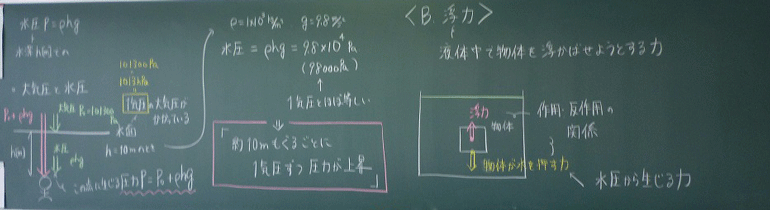 水圧 P=ρhg
水深h[m]での
・大気圧と水圧
101300Pa
1013hPa
1気圧の大気圧が
かかっている
P₀+ρhg
大気圧 P₀=101300Pa
水面
h[m]
水圧
ρhg
h=10mのとき
この点に生じる圧力P=P₀+ρhg
g=9.8m/s²
水圧=ρhg=9.8×10⁴Pa
(98000Pa)
1気圧とほぼ等しい
「約10mもぐるごとに
1気圧ずつ圧力が上昇」
<B.浮力>
液体中で物体を浮かばせようとする力
浮力
物体
作用・反作用の
関係
物体が水を押す力
水圧から生じる力